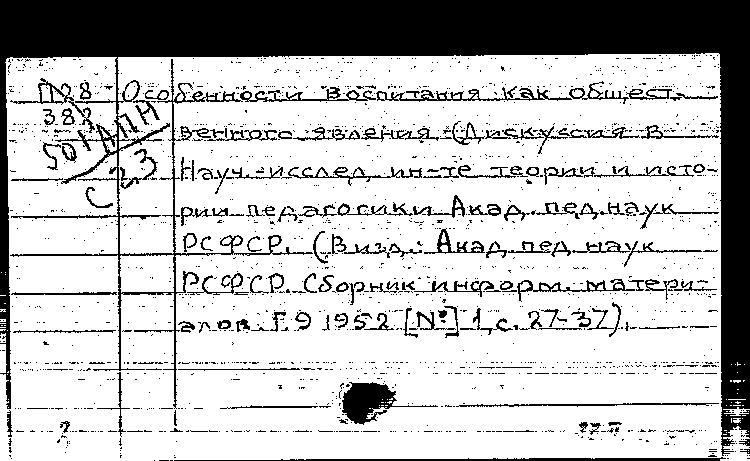 П28 Особенности воспитания как общест-
382 венного явления. (Дискуссия в
501 АПН
С 23
Науч.-исслед. ин-те теории и исто-
рии педагогики Акад. пед. наук
РСФСР. (В изд.: Акад. пед. наук
РСФСР. Сборник информ. матери-
алов. Г. 9 1952 [№] 1, с. 27-37).
2